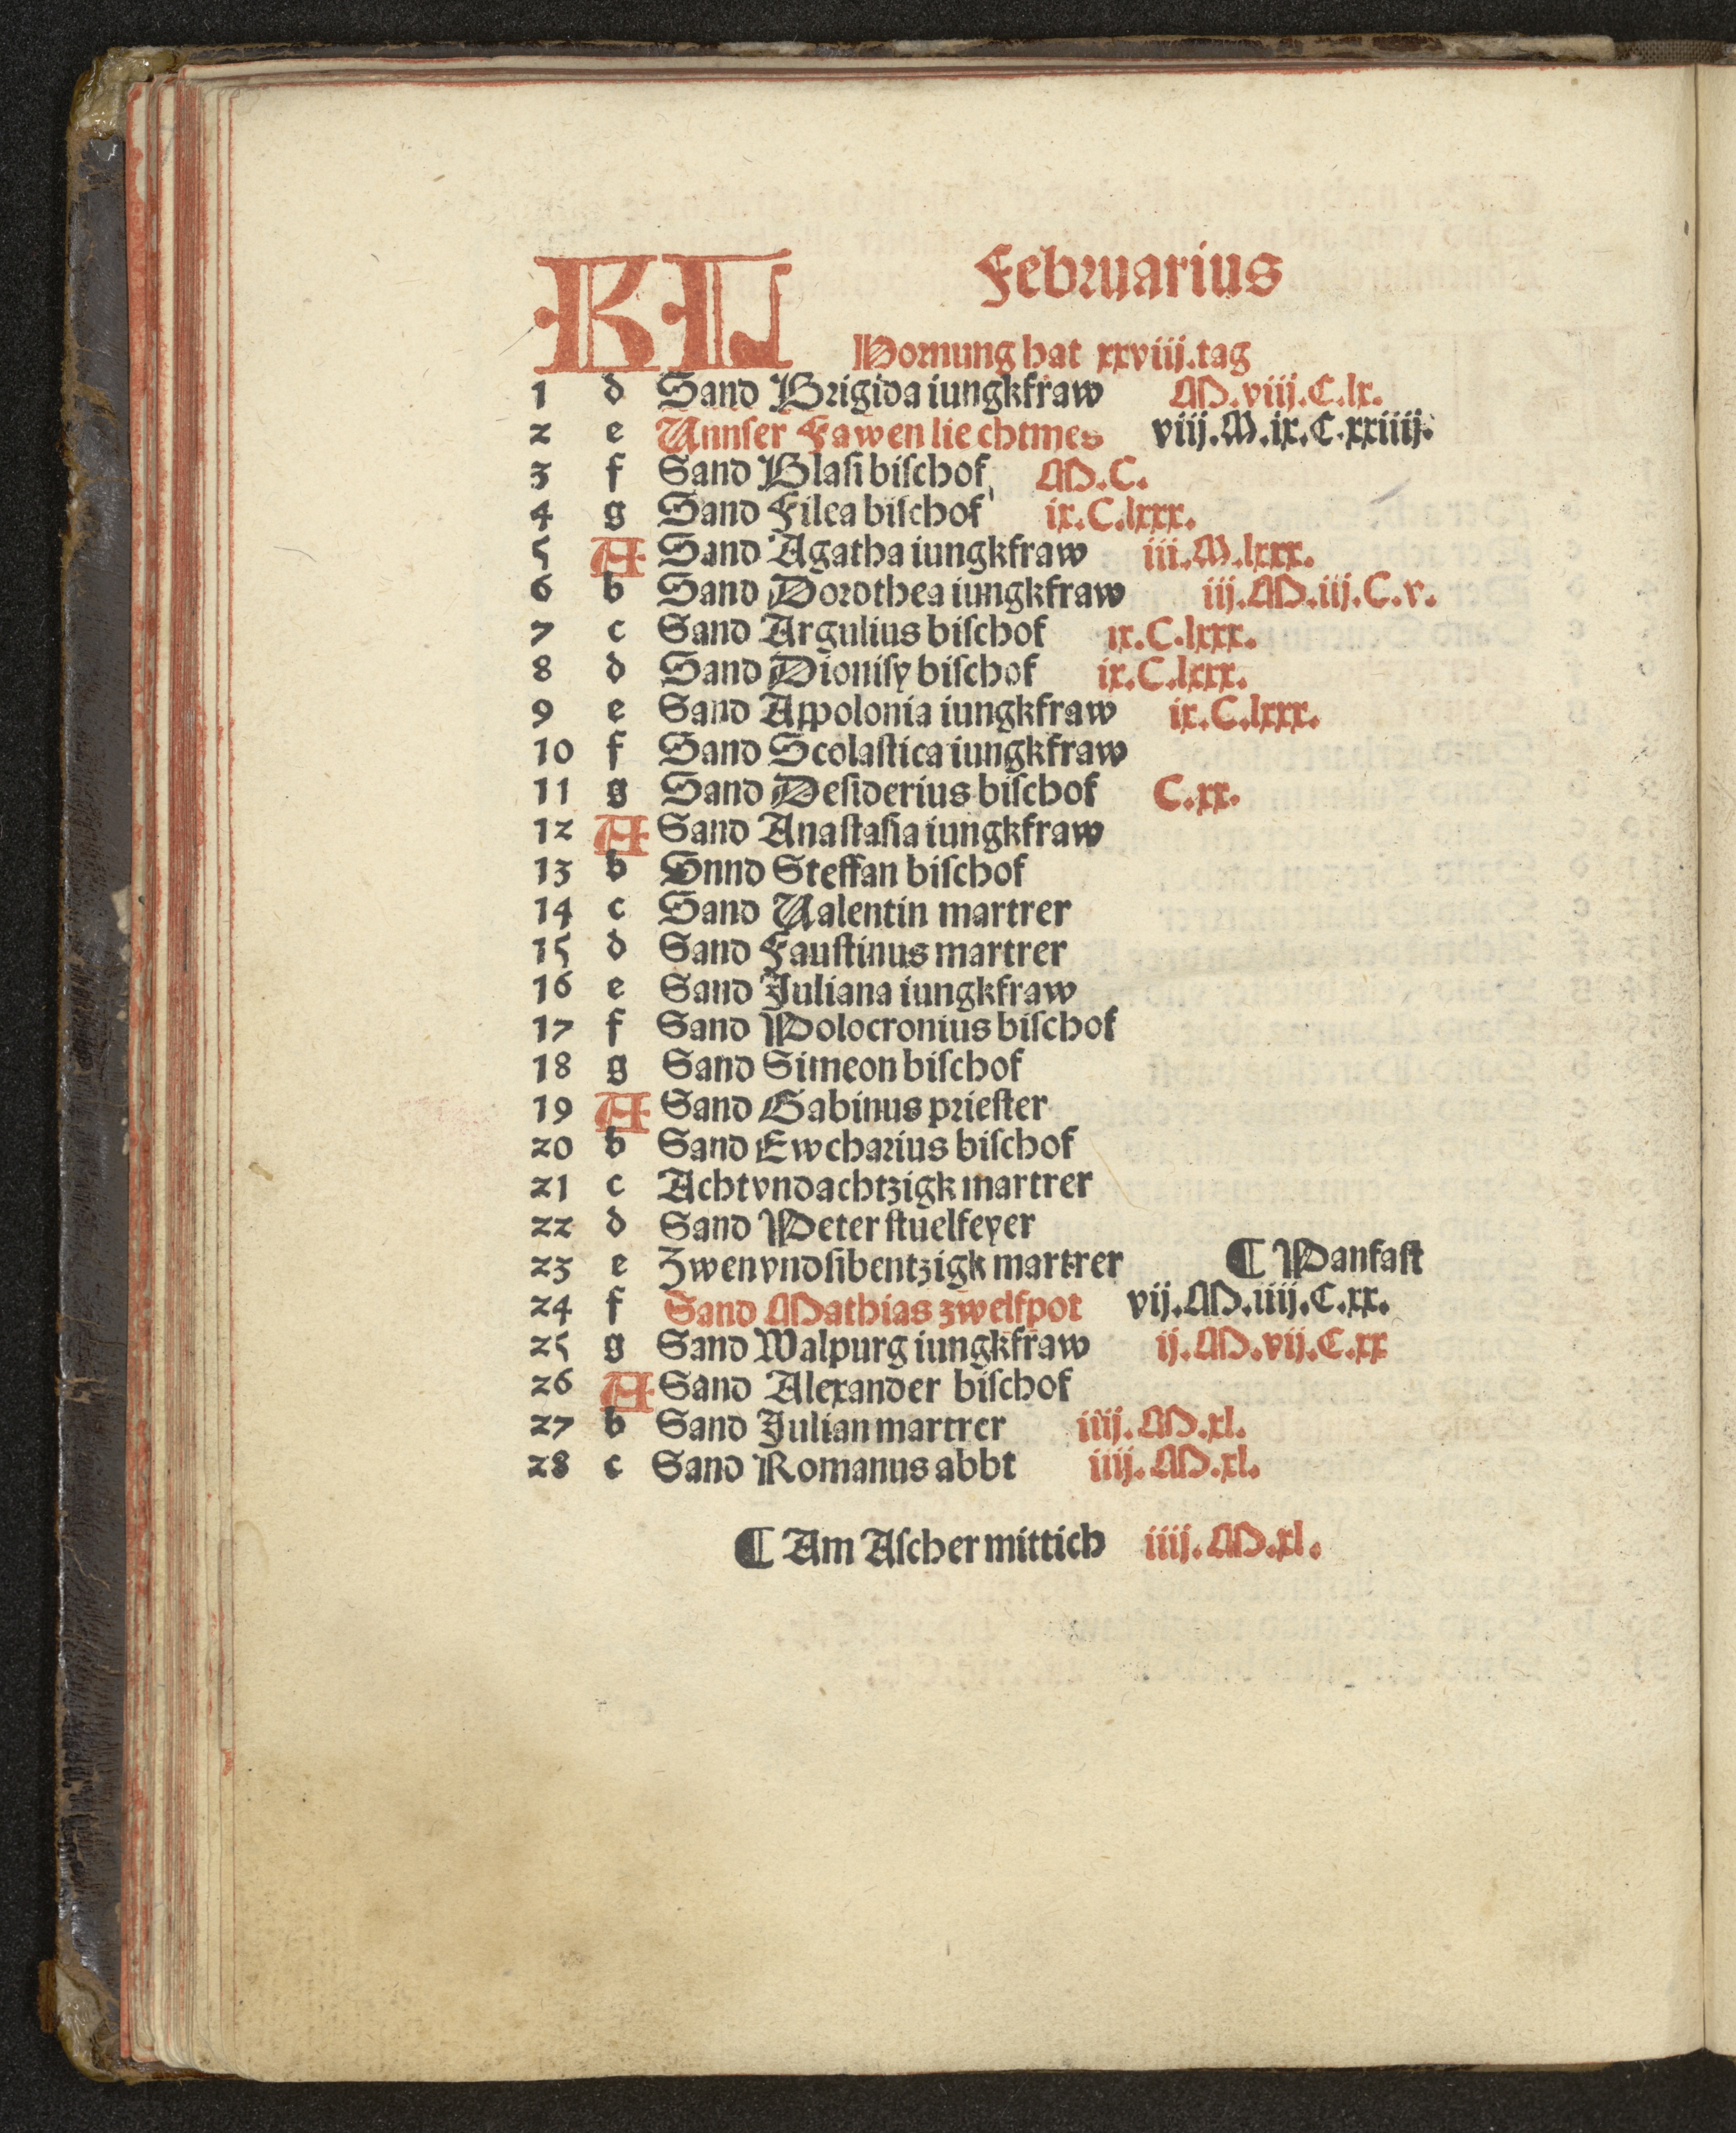 KL Februarius
Hornung hat xxviij.tag
1 d Sand Brigida iungkfraw M.viij.C.lx.
2 e Unnser Fawen lie chtmes viij.M.ix.C.xxiiij.
3 f Sand Blasi bischof M.C.
4 g Sand Filea bischof ix.C.lxxx.
5 A Sand Agatha iungkfraw iii.M.lxxx.
6 b Sand Dorothea iungkfraw iij.M.iij.C.v.
7 c Sand Argulius bischof ix.C.lxxx.
8 d Sand Dionisy bischof ix.C.lxxx.
9 e Sand Appolonia iungkfraw ix.C.lxxx.
10 f Sand Scolastica iungkfraw
11 g Sand Desiderius bischof C.xx.
12 A Sand Anastasia iungkfraw
13 b Snnd Steffan bischof
14 c Sand Ualentin martrer
15 d Sand Faustinus martrer
16 e Sand Juliana iungkfraw
17 f Sand Polocronius bischof
18 g Sand Simeon bischof
19 A Sand Gabinus priester
20 b Sand Ewcharius bischof
21 c Achtvndachtzigk martrer
22 d Sand Peter stuelfeyer
23 e Zwenvndsibentzigk martrer ¶ Panfast
24 f Sand Mathias zwelfpot vij.M.iiij.C.xx.
25 g Sand Walpurg iungkfraw ij.M.vij.C.xx
26 A Sand Alexander bischof
27 b Sand Julian martrer iiij.M.xl.
28 c Sand Romanus abbt iiij.M.xl.
¶ Am Ascher mittich iiij.M.xl.